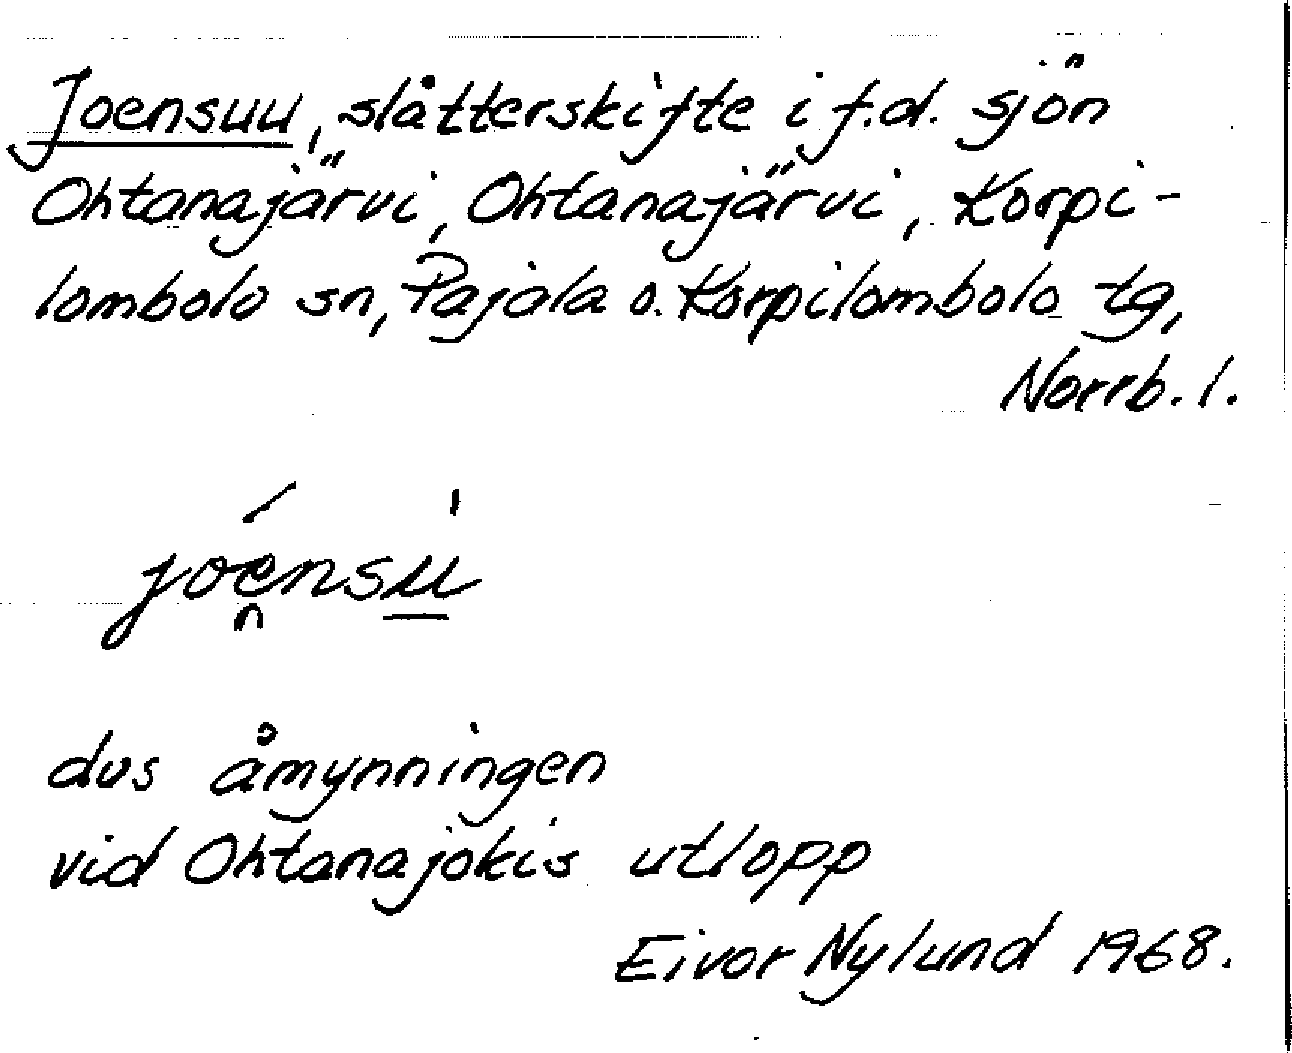 Joensuu, slåtterskifte i f.d. sjön
Ohtanajärvi, Ohtanajärvi, Korpi-
lombolo sn, Pajala o. Korpilombolo tg,
Norrb. l.
jo̯énsù̱
dvs åmynningen
vid Ohtanajokis utlopp
Eivor Nylund 1968.